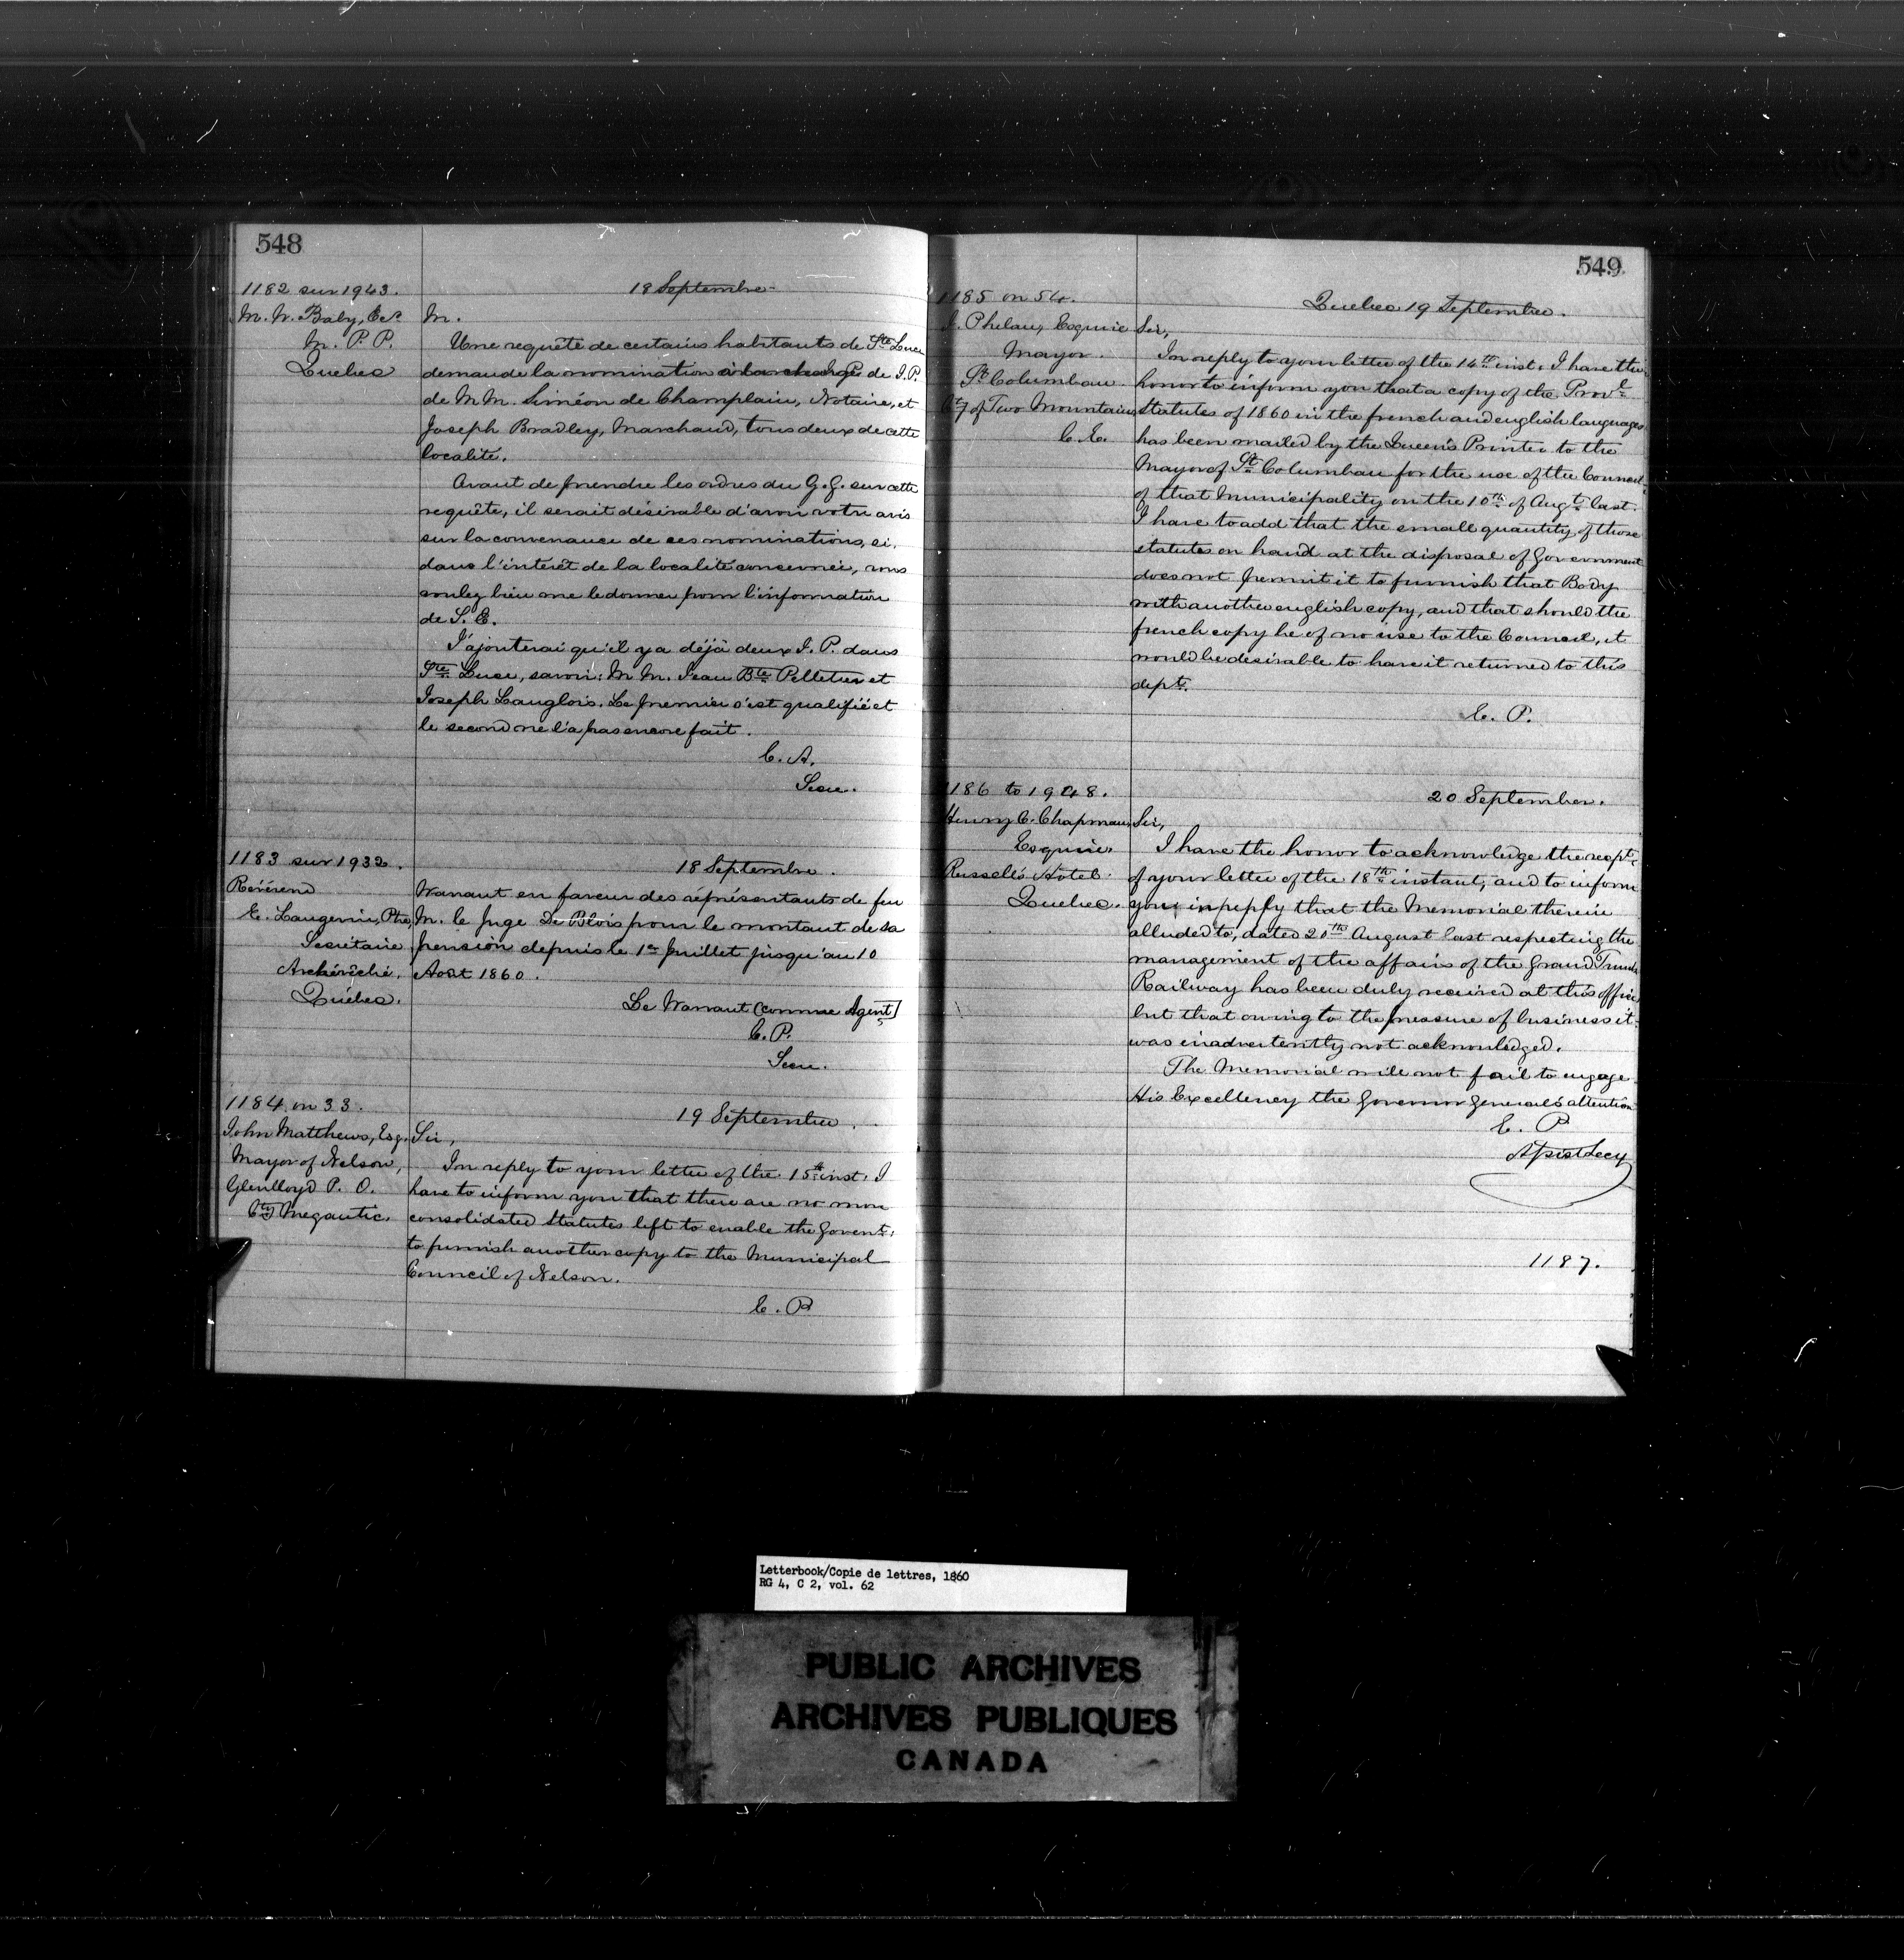 548
1182 sur 1943.
M. W. Baby, Ecr
M. P. P.
Quebec
18 Septembre
M.
Une requête de certains habitants de Ste Luce
demande la nomination à la charge de J. P.
de M M. Siméon de Champlain, Notaire, et
Joseph Bradley, Marchand, tous deux de cette
localité.
Avant de prendre les ordres du G. G. sur cette
requête, il serait désirable d'avoir votre avis
sur la convenance de ces nominations, si,
dans l'intérêt de la localité concernée, vous
voulez bien me le donner pour l'information
de S. E.
J'ajouterai qu'il y a déjà deux J. P. dans
Ste Luce, savoir: M M. Jean Bte Pelletier et
Joseph Langlois. Le premier s'est qualifié et
le second ne l'a pas encore fait.
C. A.
Secre.
1183 sur 1932.
Révérend
E. Langevin, Ptre,
Secrétaire
Archévêché.
Québec.
18 Septembre.
Warrant en faveur des représentants de feu
M. le Juge De Blois pour le montant de sa
pension depuis le 1er Juillet jusqu'au 10
Août 1860.
Le Warrant (comme Agent)
C. P.
Secre.
1184 on 33.
John Matthews, Esq.
Mayor of Nelson,
Glenlloyd P. O.
Cty Megantic.
19 Septembre.
Sir,
In reply to your letter of the 15th inst. I
have to inform you that there are no more
consolidated Statutes left to enable the Govent.
to furnish another copy to the Municipal
Council of Nelson.
C. P
549
1185 on 54.
J. Phelan, Esquire
Mayor.
St Columban
Cty of Two Mountains
C. E.
Quebec 19 Septembre.
Sir,
In reply to your letter of the 14th inst. I have the
honor to inform you that a copy of the Provl
Statutes of 1860 in the french and english languages
has been mailed by the Queen's Printer to the
Mayor of St Columban for the use of the Council
of that Municipality on the 10th of Augt last.
I have to add that the small quantity of those
statutes on hand at the disposal of Government
does not permit it to furnish that Body
with another english copy, and that should the
french copy be of no use to the Council, it
would be desirable to have it returned to this
dept.
C. P.
1186 to 1948.
Henry C. Chapman,
Esquire.
Russell's Hotel.
Quebec.
20 September.
Sir,
I have the honor to acknowledge the recpt
of your letter of the 18th instant, and to inform
you in reply that the Memorial therein
alluded to, dated 20th August last respecting the
management of the affairs of the Grand Trunk
Railway has been duly received at this office
but that owing to the pressure of business it
was inadvertently not acknowledged.
The Memorial will not fail to engage
His Excellency the Governor General's attention
E. P
Assist Secy
1187.
Letterbook/Copie de lettres, 1860
RG 4, C 2, vol. 62
PUBLIC ARCHIVES
ARCHIVES PUBLIQUES
CANADA